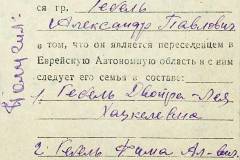 ся гр. Гебель
Александр Павлович
в том, что он является переселенцем в
Еврейскую Автономную область и с ним
следует его семья в составе:
1. Гебель Двойра-Лея
Хацкелевна
2. Гебель Фима Ал-вич
Получил: